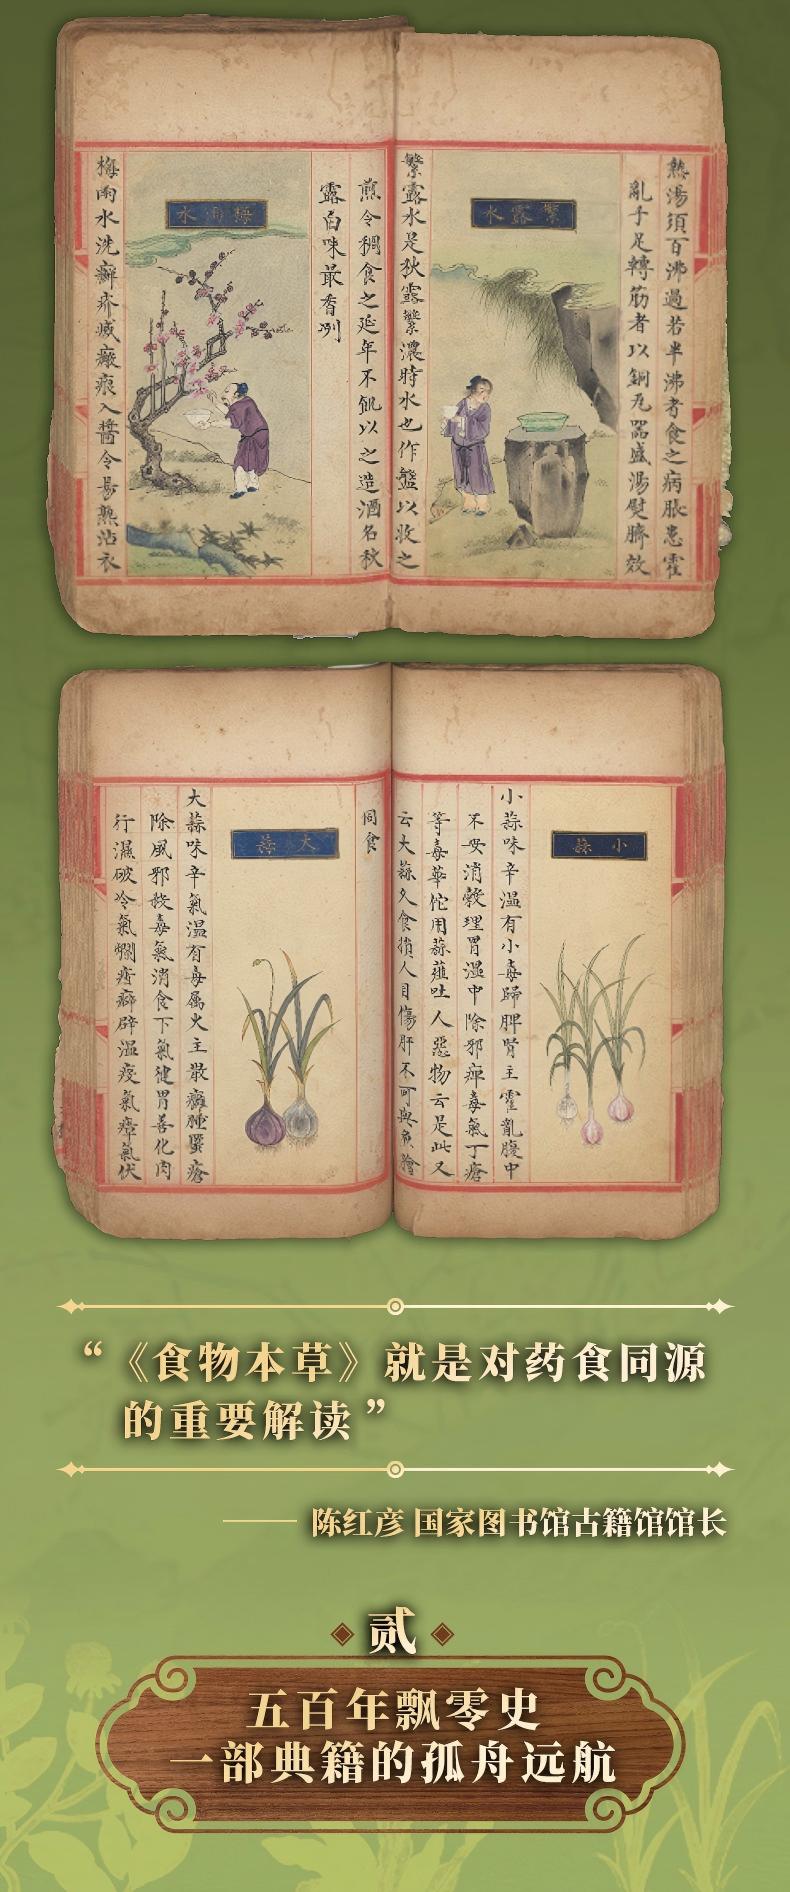 熱湯須百沸過若半沸者食之病脹患霍
亂手足轉筋者以銅瓦器盛湯熨臍效
繁露水
繁露水是秋露繁濃時水也作盤以收之
煎令稠食之延年不飢以之造酒名秋
露白味最香冽
梅雨水
梅雨水洗癬疥滅瘢痕入醬令易熟沾衣
小蒜
小蒜味辛温有小毒歸脾腎主霍亂腹中
不安消穀理胃温中除邪痺毒氣丁瘡
等毒華佗用蒜虀吐人惡物云是此又
云大蒜久食損人目傷肝不可與魚膾
同食
大蒜
大蒜味辛氣温有毒属火主散癰腫䘌瘡
除風邪殺毒氣消食下氣健胃善化肉
行濕破冷氣爛痃癖辟温疫氣瘴氣伏
“《食物本草》就是对药食同源
的重要解读”
—— 陈红彦 国家图书馆古籍馆馆长
贰
五百年飘零史
一部典籍的孤舟远航